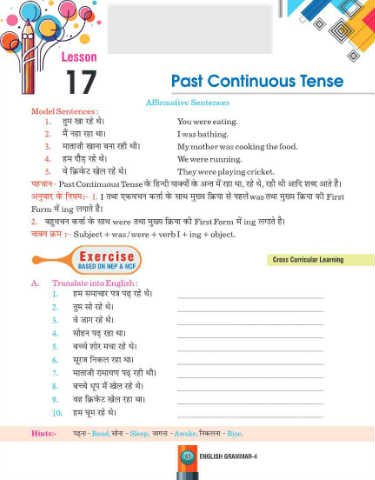 Lesson
17
Past Continuous Tense
Affirmative Sentences
Model Sentences :
1. तुम खा रहे थे। You were eating.
2. मैं नहा रहा था। I was bathing.
3. माताजी खाना बना रही थी। My mother was cooking the food.
4. हम दौड़ रहे थे। We were running.
5. वे क्रिकेट खेल रहे थे। They were playing cricket.
पहचान- Past Continuous Tense के हिन्दी वाक्यों के अन्त में रहा था, रहे थे, रही थी आदि शब्द आते हैं।
अनुवाद के नियम:- 1. I तथा एकवचन कर्त्ता के साथ मुख्य क्रिया से पहले was तथा मुख्य क्रिया की First
Form में ing लगाते हैं।
2. बहुवचन कर्त्ता के साथ were तथा मुख्य क्रिया की First Form में ing लगाते हैं।
वाक्य क्रम :- Subject + was / were + verb I + ing + object.
Exercise
BASED ON NEP & NCF
Cross Curricular Learning
A. Translate into English :
1. हम समाचार पत्र पढ़ रहे थे।
2. तुम सो रहे थे।
3. वे जाग रहे थे।
4. सोहन पढ़ रहा था।
5. बच्चे शोर मचा रहे थे।
6. सूरज निकल रहा था।
7. माताजी रामायण पढ़ रही थी।
8. बच्चे धूप में खेल रहे थे।
9. वह क्रिकेट खेल रहा था।
10. हम घूम रहे थे।
Hints:- पढ़ना - Read, सोना - Sleep, जागना - Awake, निकलना - Rise.
ENGLISH GRAMMAR-4